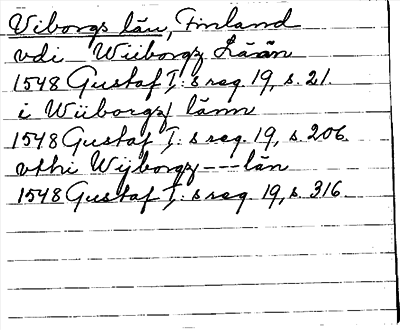 Viborgs län, Finland
vdi Wiiborgz Lään
1548 Gustaf I:s reg. 19, s. 21.
i Wiiborgz länn
1548 Gustaf I:s reg. 19, s. 206.
vthi Wijborgz --- län
1548 Gustaf I:s reg. 19, s. 316.